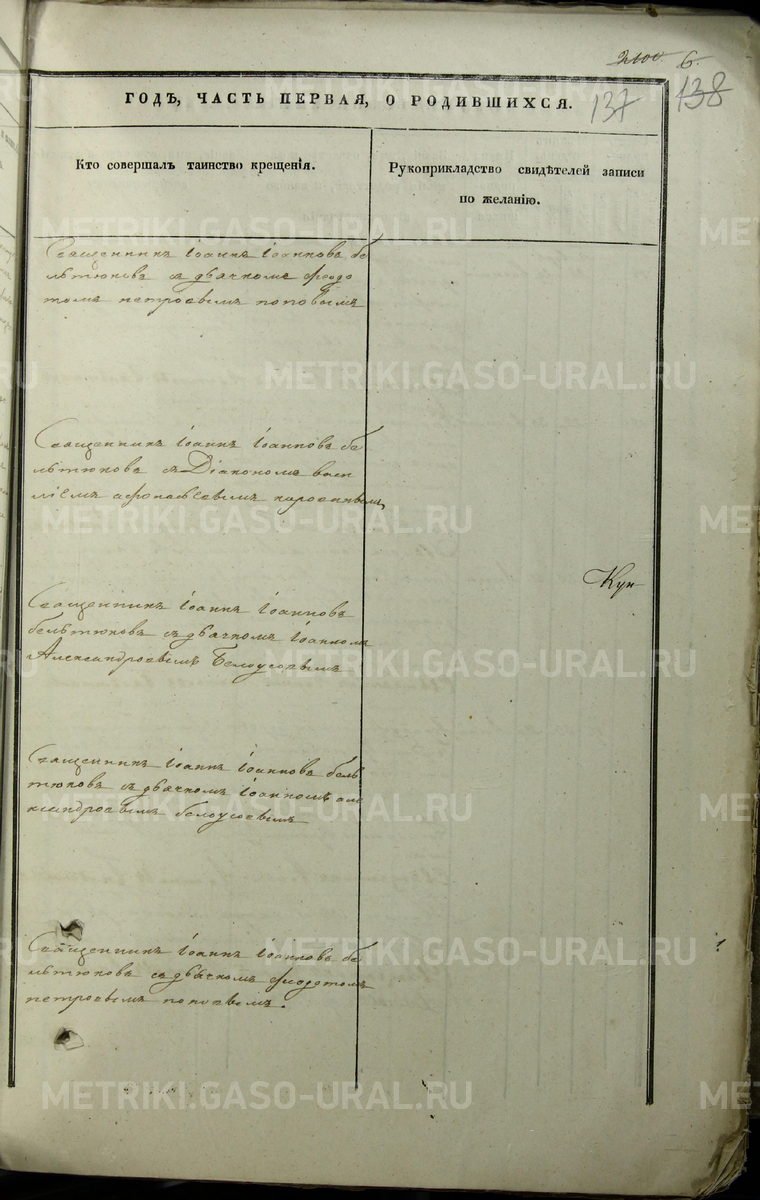 2100. 6.
137 138
ГОДЪ, ЧАСТЬ ПЕРВАЯ, О РОДИВШИХСЯ.
Кто совершалъ таинство крещенія.
Рукоприкладство свидѣтелей записи
по желанію.
Священникъ Іоаннъ Іоанновъ бе
льтюковъ съ дьячкомъ Феодо
томъ петровымъ поповымъ
Священникъ Іоаннъ Іоанновъ бе
льтюковъ съ Діакономъ васи
ліемъ
Кун
Священникъ Іоаннъ Іоанновъ
бельтюковъ съ дьячкомъ Іоанномъ
Александровымъ Белоусовымъ
Священникъ Іоаннъ Іоанновъ бель
тюковъ съ дьячкомъ Іоанномъ але
ксандровымъ белоусовымъ
Священникъ Іоаннъ Іоанновъ бе
льтюковъ съ дьячкомъ Феодотомъ
петровымъ поповымъ.
METRIKI.GASO-URAL.RU